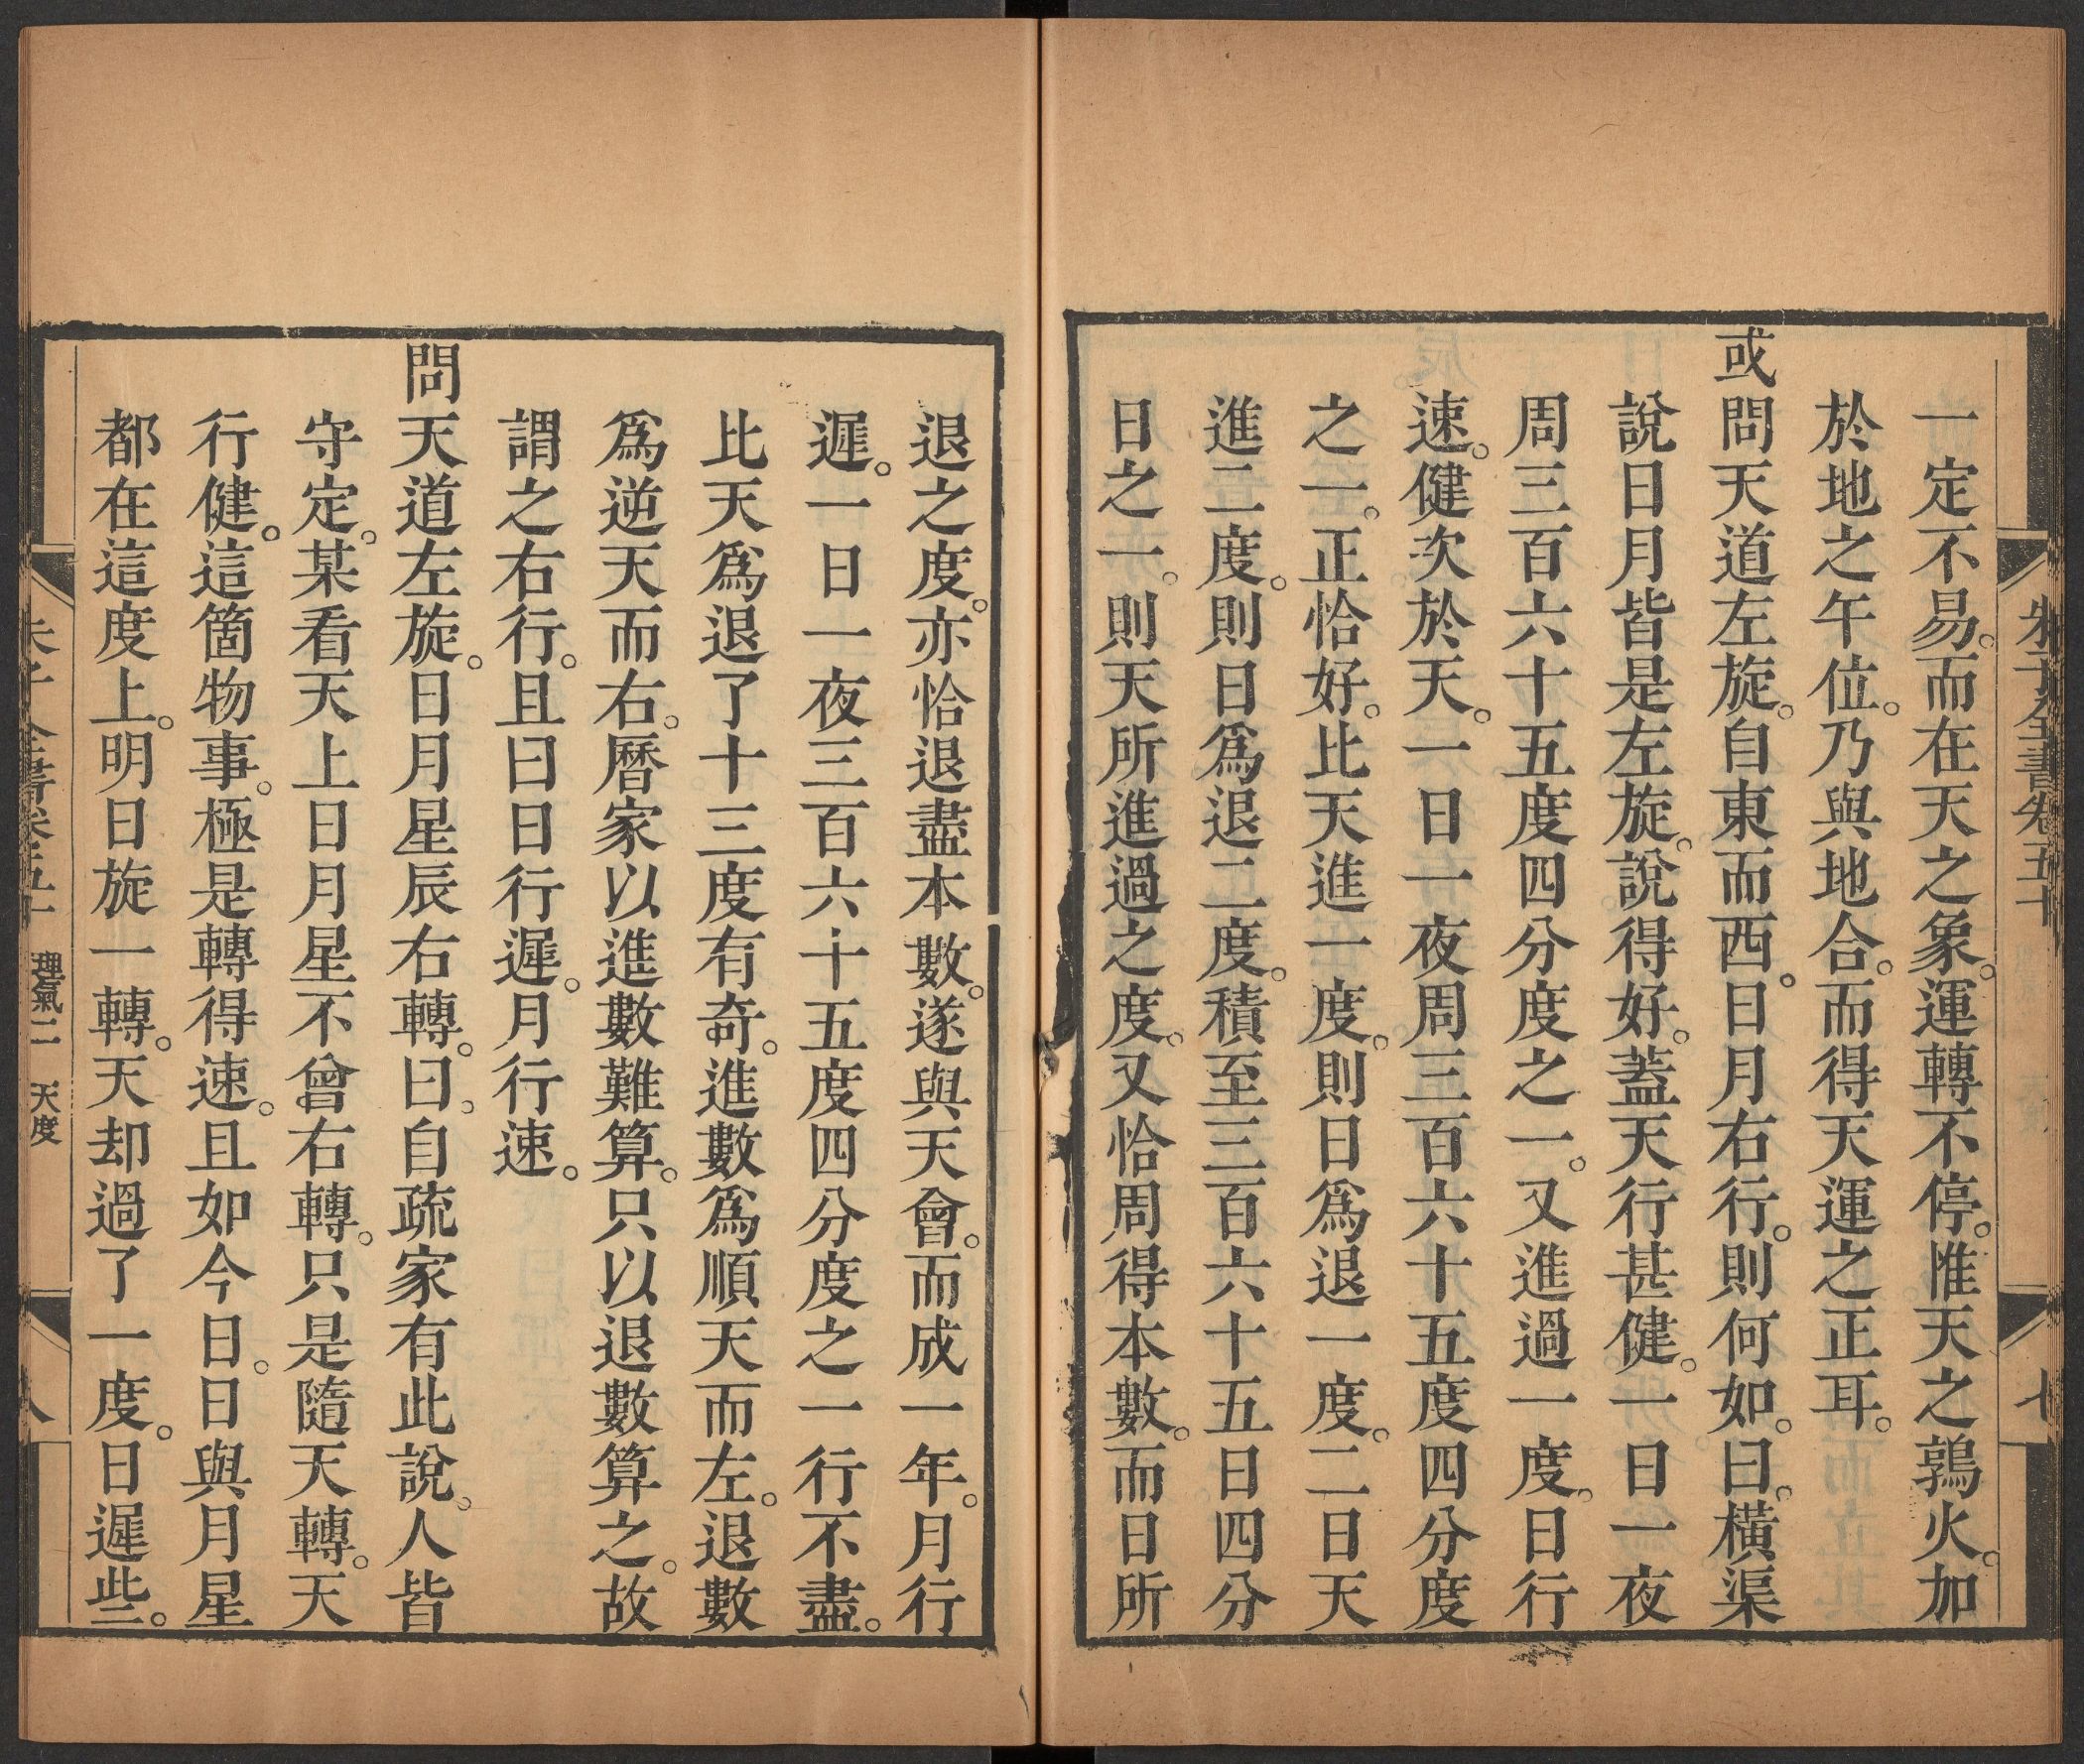 朱子全書卷五十
七
一定不易。而在天之象。運轉不停。惟天之鶉火。加
於地之午位。乃與地合。而得天運之正耳。
或問天道左旋。自東而西。日月右行。則何如。曰。橫渠
說日月皆是左旋。說得好。蓋天行甚健。一日一夜
周三百六十五度四分度之一。又進過一度。日行
速。健次於天。一日一夜周三百六十五度四分度
之一。正恰好。比天進一度。則日爲退一度。二日天
進二度。則日爲退二度。積至三百六十五日四分
日之一。則天所進過之度。又恰周得本數。而日所
退之度。亦恰退盡本數。遂與天會。而成一年。月行
遲。一日一夜三百六十五度四分度之一行不盡。
比天爲退了十三度有奇。進數爲順天而左。退數
爲逆天而右。曆家以進數難算。只以退數算之。故
謂之右行。且曰日行遲。月行速。
問天道左旋。日月星辰右轉。曰。自疏家有此說。人皆
守定。某看天上日月星不曾右轉。只是隨天轉。天
行健。這箇物事。極是轉得速。且如今日。日與月星
都在這度上。明日旋一轉。天却過了一度。日遲些。
朱子全書卷五十 理氣二 天度
八